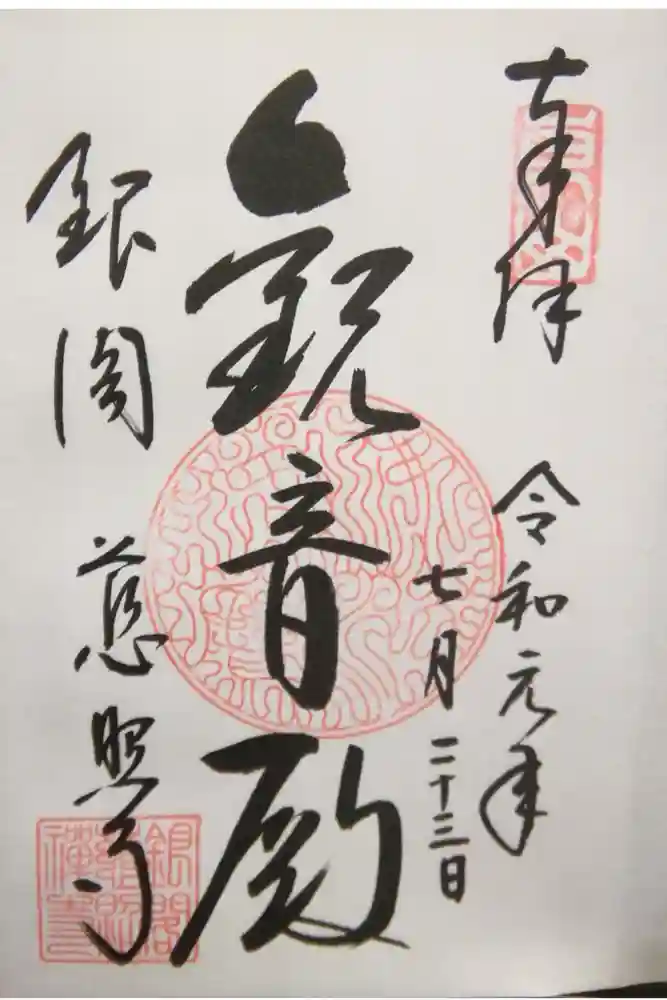 奉拝
令和元年
七月二十三日
観音殿
銀閣
慈照寺